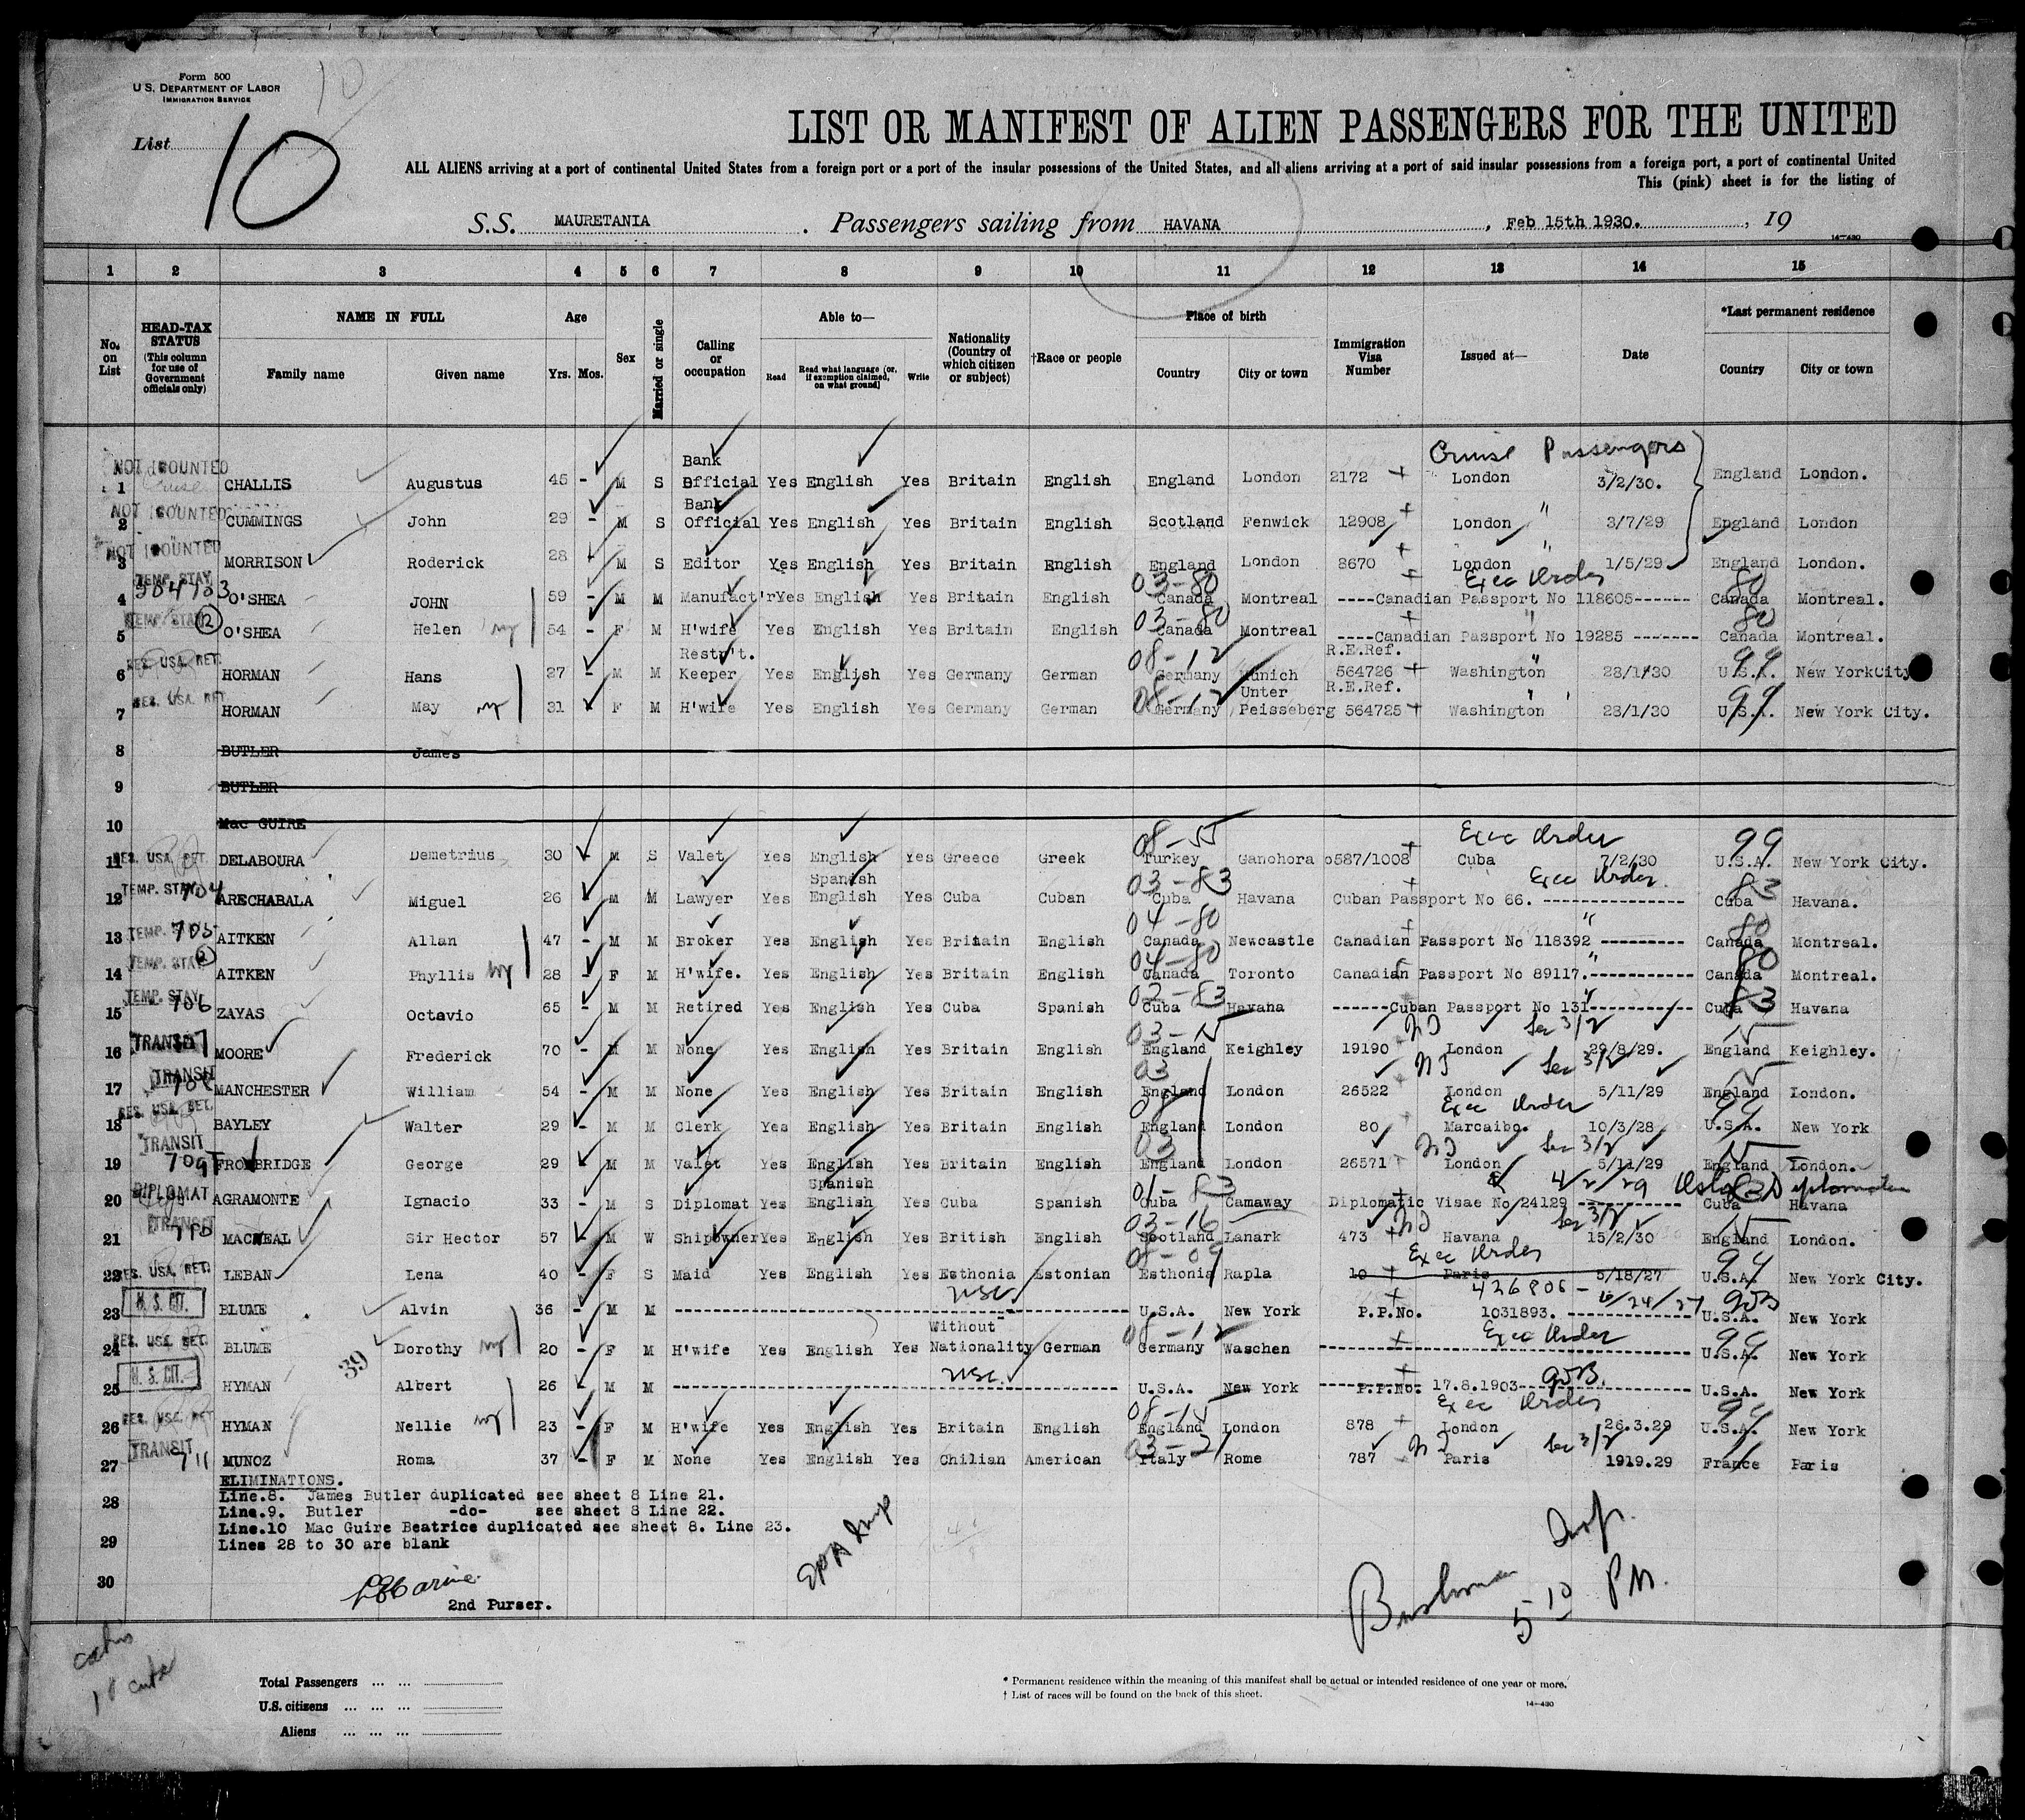 Form 500
U.S. DEPARTMENT OF LABOR
IMMIGRATION SERVICE
10
List 10
LIST OR MANIFEST OF ALIEN PASSENGERS FOR THE UNITED
ALL ALIENS arriving at a port of continental United States from a foreign port or a port of the insular possessions of the United States, and all aliens arriving at a port of said insular possessions from a foreign port, a port of continental United
This (pink) sheet is for the listing of
S.S. MAURETANIA . Passengers sailing from HAVANA , Feb 15th 1930. , 19
14-430
1 2 3 4 5 6 7 8 9 10 11 12 13 14 15
No. on List
HEAD-TAX STATUS (This column for use of Government officials only)
NAME IN FULL
Family name Given name
Age
Yrs. Mos.
Sex
Married or single
Calling or occupation
Able to—
Read Read what language (or, if exemption claimed, on what ground) Write
Nationality (Country of which citizen or subject)
†Race or people
Place of birth
Country City or town
Immigration Visa Number
Issued at—
Date
*Last permanent residence
Country City or town
Cruise Passengers
NOT COUNTED
1 CHALLIS Augustus 45 - M S Bank Official Yes English Yes Britain English England London 2172 London 3/2/30. England London.
NOT COUNTED
2 CUMMINGS John 29 - M S Bank Official Yes English Yes Britain English Scotland Fenwick 12908 London " 3/7/29 England London
NOT COUNTED
3 MORRISON Roderick 28 - M S Editor Yes English Yes Britain English England London 8670 London " 1/5/29 England London.
TEMP. STAY 03-80 Exec Order 80
4 O'SHEA JOHN 59 - M M Manufact'r Yes English Yes Britain English Canada Montreal ----Canadian Passport No 118605------ Canada Montreal.
TEMP. STAY 2 03-80 " 80
5 O'SHEA Helen 54 - F M H'wife Yes English Yes Britain English Canada Montreal ----Canadian Passport No 19285 ------- Canada Montreal.
RES. USA. RET. 08-12 99
6 HORMAN Hans 27 - M M Restr't. Keeper Yes English Yes Germany German Germany Munich R.E.Ref. 564726 Washington " 28/1/30 U.S.A. New York City
RES. USA. RET. 08-12 99
7 HORMAN May 31 F M H'wife Yes English Yes Germany German Germany Unter Peisseberg R.E.Ref. 564725 Washington " 28/1/30 U.S.A. New York City.
8 BUTLER James
9 BUTLER
10 Mac GUIRE
RES. USA. RET. 08-55 Exec Order 99
11 DELABOURA Demetrius 30 - M S Valet Yes English Yes Greece Greek Turkey Ganohora 0587/1008 Cuba 7/2/30 U.S.A. New York City.
TEMP. STAY 704 03-83 Exec Order. 83
12 ARECHABALA Miguel 26 - M M Lawyer Yes Spanish English Yes Cuba Cuban Cuba Havana Cuban Passport No 66. --------------- Cuba Havana.
TEMP. STAY 705 04-80 " 80
13 AITKEN Allan 47 - M M Broker Yes English Yes Britain English Canada Newcastle Canadian Passport No 118392 --------- Canada Montreal.
TEMP. STAY 2 04-80 " 80
14 AITKEN Phyllis 28 - F M H'wife. Yes English Yes Britain English Canada Toronto Canadian Passport No 89117.----------- Canada Montreal.
TEMP. STAY 706 02-83 " 83
15 ZAYAS Octavio 65 - M M Retired Yes English Yes Cuba Spanish Cuba Havana ------Cuban Passport No 131----------- Cuba Havana
TRANSIT 707 03-15 Sec 3/2
16 MOORE Frederick 70 - M M None Yes English Yes Britain English England Keighley 19190 London 29/8/29. England Keighley.
TRANSIT 708 03 Sec 3/2
17 MANCHESTER William 54 - M M None Yes English Yes Britain English England London 26522 London 5/11/29 England London.
RES. USA. RET. 08 Exec Order 99
18 BAYLEY Walter 29 - M M Clerk Yes English Yes Britain English England London 80 Marcaibo. 10/3/28 U.S.A. New York
TRANSIT 709 03 Sec 3/2
19 TROWBRIDGE George 29 M M Valet Yes English Yes Britain English England London 26571 London 5/11/29 England London.
DIPLOMAT 01-83 4/2/29
20 AGRAMONTE Ignacio 33 - M S Diplomat Yes Spanish English Yes Cuba Spanish Cuba Camaway Diplomatic Visae No 24129 ---------- Cuba Havana
TRANSIT 710 03-16 Sec 3/2
21 MACNEAL Sir Hector 57 M W Shipowner Yes English Yes British English Scotland Lanark 473 Havana 15/2/30 England London.
RES. USA. RET. 08-09 Exec Order 99
22 LEBAN Lena 40 - F S Maid Yes English Yes Esthonia Estonian Esthonia Rapla 10 Paris 5/18/27 U.S.A. New York City.
U.S. CIT. USC 426806 - 6/24/27
23 BLUME Alvin 36 - M M ---------- U.S.A. New York P.P.No. 1031893. ---------- U.S.A. New York
RES. USA. RET. 08-12 Exec Order 99
24 BLUME Dorothy 20 - F M H'wife Yes English Yes Without Nationality German Germany Waschen ---------- U.S.A. New York
39
U.S. CIT. USC.
25 HYMAN Albert 26 - M M ---------- U.S.A. New York ------P.P.No. 17.8.1903---------- U.S.A. New York
RES. USA. RET 08-15 Exec Order 99
26 HYMAN Nellie 23 - F M H'wife Yes English Yes Britain English England London 878 London 26.3.29 U.S.A. New York
TRANSIT 711 03-21 Sec 3/2
27 MUNOZ Roma 37 - F M None Yes English Yes Chilian American Italy Rome 787 Paris 1919.29 France Paris
ELIMINATIONS.
28 Line.8. James Butler duplicated see sheet 8 Line 21.
Line.9. Butler -do- see sheet 8 Line 22.
Line.10 Mac Guire Beatrice duplicated see sheet 8. Line 23.
29 Lines 28 to 30 are blank
30
2nd Purser.
Insp.
5 10 PM.
Total Passengers ... ...
U.S. citizens ... ... ...
Aliens ... ... ...
* Permanent residence within the meaning of this manifest shall be actual or intended residence of one year or more.
† List of races will be found on the back of this sheet.
14-430